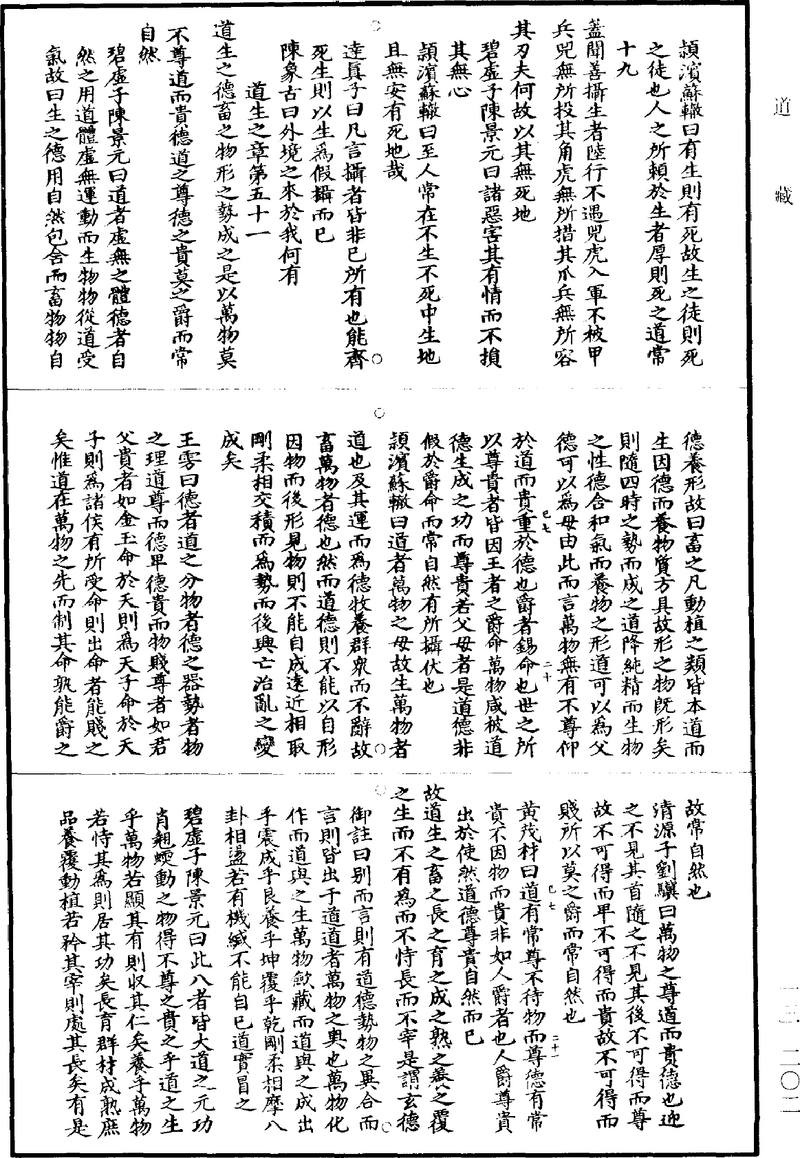 道藏
穎濱蘇轍曰有生則有死故生之徒則死
之徒也人之所賴於生者厚則死之道常
十九
蓋聞善攝生者陸行不遇兕虎入軍不被甲
兵兕無所投其角虎無所措其爪兵無所容
其刃夫何故以其無死地
碧虛子陳景元曰諸惡害其有情而不損
其無心
穎濱蘇轍曰至人常在不生不死中生地
且無安有死地哉
達真子曰凡言攝者皆非已所有也能齊
死生則以生爲假攝而已
陳象古曰外境之來於我何有
道生之章第五十一
道生之德畜之物形之勢成之是以萬物莫
不尊道而貴德道之尊德之貴莫之爵而常
自然
碧虛子陳景元曰道者虛無之體德者自
然之用道體虛無運動而生物物從道受
氣故曰生之德用自然包含而畜物物自
德養形故曰畜之凡動植之類皆本道而
生因德而養物質方具故形之物旣形矣
則隨四時之勢而成之道降純精而生物
之性德含和氣而養物之形道可以爲父
德可以爲母由此而言萬物無有不尊仰
於道而貴重於德也爵者錫命也世之所
以尊貴者皆因王者之爵命萬物咸被道
德生成之功而尊貴若父母者是道德非
假於爵命而常自然有所攝伏也
穎濱蘇轍曰道者萬物之母故生萬物者
道也及其運而爲德牧養群衆而不辭故
畜萬物者德也然而道德則不能以自形
因物而後形見物則不能自成遠近相取
剛柔相交積而爲勢而後興亡治亂之變
成矣
王雱曰德者道之分物者德之器勢者物
之理道尊而德卑德貴而物賤尊者如君
父貴者如金玉命於天則爲天子命於天
子則爲諸侯有所受命則出命者能賤之
矣惟道在萬物之先而制其命孰能爵之
故常自然也
清源子劉驥曰萬物之尊道而貴德也迎
之不見其首隨之不見其後不可得而尊
故不可得而卑不可得而貴故不可得而
賤所以莫之爵而常自然也
黃茂材曰道有常尊不待物而尊德有常
貴不因物而貴非如人爵者也人爵尊貴
出於使然道德尊貴自然而已
故道生之畜之長之育之成之熟之養之覆
之生而不有爲而不恃長而不宰是謂玄德
御註曰別而言則有道德勢物之異合而
言則皆出于道道者萬物之奧也萬物化
作而道與之生萬物斂藏而道與之成出
乎震成乎艮養乎坤覆乎乾剛柔相摩八
卦相盪若有機緘不能自已道實冒之
碧虛子陳景元曰此八者皆大道之元功
肖翹蝡動之物得不尊之貴之乎道之生
乎萬物若顯其有則收其仁矣養乎萬物
若恃其爲則居其功矣長育群材成熟庶
品養覆動植若矜其宰則處其長矣有是
己七
二十
己七
二十一
一三—二〇二